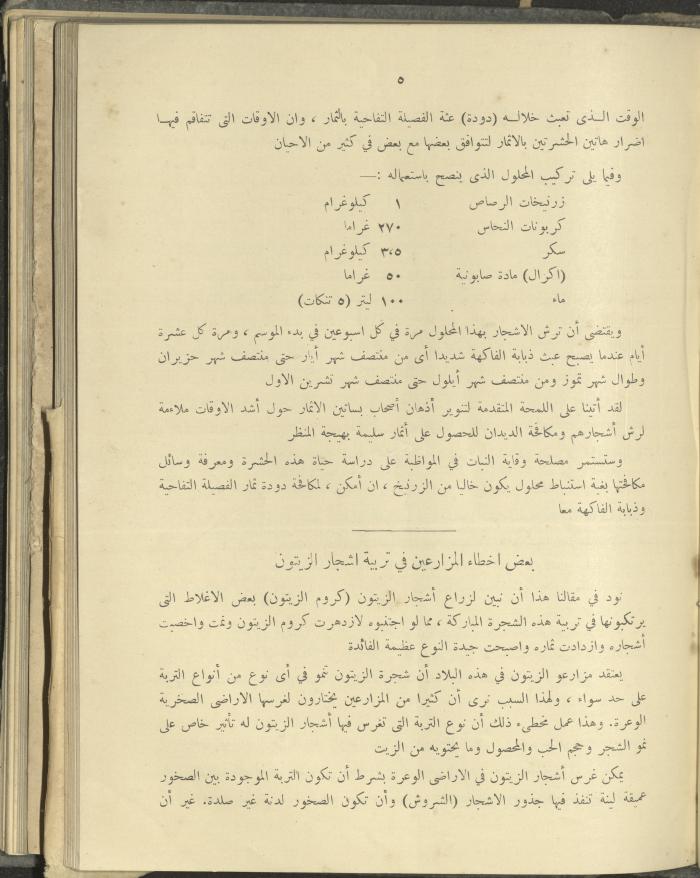 ٥
الوقت الـذى تعبث خلالـه (دودة) عثة الفصيلة التفاحية بالثمار ، وان الاوقات التى تتفاقم فيهـا
اضرار هاتين الحشرتين بالاثمار لتتوافق بعضها مع بعض في كثير من الاحيان
وفيما يلى تركيب المحلول الذى ينصح باستعماله :—
زرنيخات الرصاص ١ كيلوغرام
كربونات النحاس ٢٧٠ غراما
سكر ٣،٥ كيلوغرام
(اكرال) مادة صابونية ٥٠ غراما
ماء ١٠٠ ليتر (٥ تنكات)
ويقتضى أن ترش الاشجار بهذا المحلول مرة في كل اسبوعين في بدء الموسم ، ومرة كل عشرة
أيام عندما يصبح عبث ذبابة الفاكهة شديدا أى من منتصف شهر أيار حتى منتصف شهر حزيران
وطوال شهر تموز ومن منتصف شهر أيلول حتى منتصف شهر تشرين الاول
لقد أتينا على اللمحة المتقدمة لتنوير أذهان أصحاب بساتين الاثمار حول أشد الاوقات ملاءمة
لرش أشجارهم ومكافحة الديدان للحصول على أثمار سليمة بهيجة المنظر
وستستمر مصلحة وقاية النبات في المواظبة على دراسة حياة هذه الحشرة ومعرفة وسائل
مكافحتها بغية استنباط محلول يكون خاليا من الزرنيخ ، ان أمكن ، لمكافحة دودة ثمار الفصيلة التفاحية
وذبابة الفاكهة معا
بعض اخطاء المزارعين في تربية اشجار الزيتون
نود في مقالنا هذا أن نبين لزراع أشجار الزيتون (كروم الزيتون) بعض الاغلاط التى
يرتكبونها في تربية هذه الشجرة المباركة ، مما لو اجتنبوه لازدهرت كروم الزيتون ونمت واخصبت
أشجاره وازدادت ثماره واصبحت جيدة النوع عظيمة الفائدة
يعتقد مزارعو الزيتون في هذه البلاد أن شجرة الزيتون تنمو في أى نوع من أنواع التربة
على حد سواء ، ولهذا السبب نرى أن كثيرا من المزارعين يختارون لغرسها الاراضى الصخرية
الوعرة. وهذا عمل مخطىء ذلك أن نوع التربة التى تغرس فيها أشجار الزيتون له تأثير خاص على
نمو الشجر وحجم الحب والمحصول وما يحتويه من الزيت
يمكن غرس أشجار الزيتون في الاراضى الوعرة بشرط أن تكون التربة الموجودة بين الصخور
عميقة لينة تنفذ فيها جذور الاشجار (الشروش) وأن تكون الصخور لدنة غير صلدة. غير أن